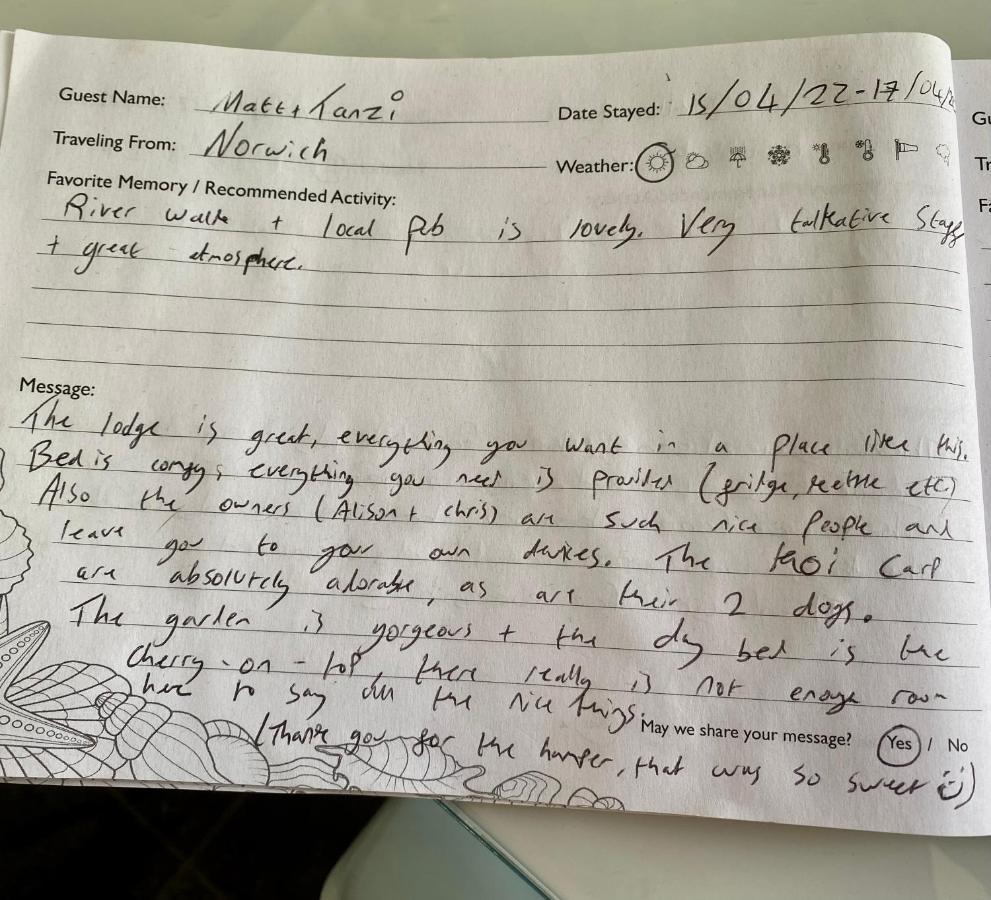 Guest Name: Matt + Tanzi
Date Stayed: 15/04/22-17/04/
Traveling From: Norwich
Weather:
Favorite Memory / Recommended Activity:
River walk + local pub is lovely. Very talkative staff
+ great atmosphere.
Message:
The lodge is great, everything you want in a place like this.
Bed is comfy, everything you need is provided (fridge, kettle etc)
Also the owners (Alison + chris) are such nice people and
leave you to your own devices. The Koi Carp
are absolutely adorable, as are their 2 dogs.
The garden is gorgeous + the day bed is the
cherry-on-top, there really is not enough room
here to say all the nice things.
May we share your message? Yes / No
(Thank you for the hamper, that was so sweet